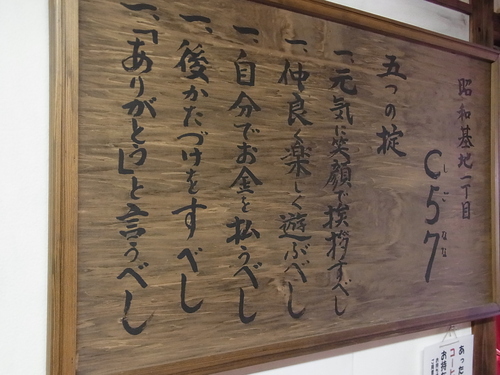 昭和基地一丁目
C57
しごなな
五つの掟
一、元気に笑顔で挨拶すべし
一、仲良く楽しく遊ぶべし
一、自分でお金を払うべし
一、後かたづけをすべし
一、「ありがとう」と言うべし
あった
コート
お持ち